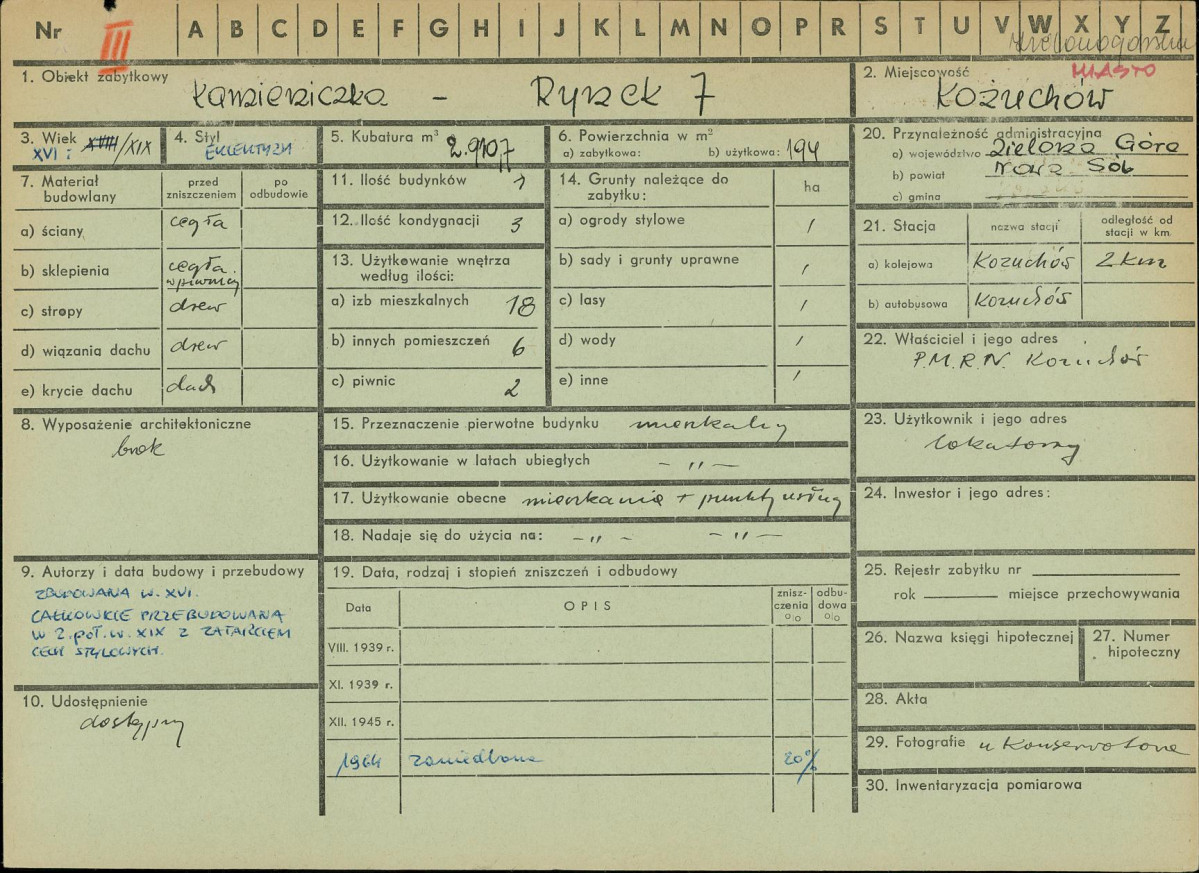 Nr III A B C D E F G H I J K L M N O P R S T U V W X Y Z
1. Obiekt zabytkowy
Kamieniczka - Rynek 7
2. Miejscowość MIASTO
Kożuchów
3. Wiek
XVI i XVIII/XIX
4. Styl
EKLEKTYZM
5. Kubatura m³
2.910,7
6. Powierzchnia w m²
a) zabytkowa: b) użytkowa: 194
20. Przynależność administracyjna
a) województwo Zielona Góra
b) powiat Nowa Sól
c) gmina
7. Materiał budowlany
przed zniszczeniem
po odbudowie
a) ściany cegła
b) sklepienia cegła w piwnicy
c) stropy drew
d) wiązania dachu drew
e) krycie dachu dach
11. Ilość budynków 1
12. Ilość kondygnacji 3
13. Użytkowanie wnętrza
według ilości:
a) izb mieszkalnych 18
b) innych pomieszczeń 6
c) piwnic 2
14. Grunty należące do
zabytku:
ha
a) ogrody stylowe /
b) sady i grunty uprawne /
c) lasy /
d) wody /
e) inne /
21. Stacja
nazwa stacji
odległość od
stacji w km.
a) kolejowa Kożuchów 2 km
b) autobusowa Kożuchów
22. Właściciel i jego adres
P.M.R.N. Kożuchów
8. Wyposażenie architektoniczne
brak
15. Przeznaczenie pierwotne budynku mieszkalny
16. Użytkowanie w latach ubiegłych - " -
17. Użytkowanie obecne mieszkanie + punkty usług
18. Nadaje się do użycia na: - " - - " -
23. Użytkownik i jego adres
lokatorzy
24. Inwestor i jego adres:
9. Autorzy i data budowy i przebudowy
ZBUDOWANA W. XVI.
CAŁKOWICIE PRZEBUDOWANA
W 2. POŁ. W. XIX Z ZATARCIEM
CECH STYLOWYCH.
10. Udostępnienie
dostępny
19. Data, rodzaj i stopień zniszczeń i odbudowy
Data
OPIS
znisz-
czenia
%
odbu-
dowa
%
VIII. 1939 r.
XI. 1939 r.
XII. 1945 r.
1964 zaniedbana 20%
25. Rejestr zabytku nr
rok miejsce przechowywania
26. Nazwa księgi hipotecznej
27. Numer
hipoteczny
28. Akta
29. Fotografie u Konserwatora
30. Inwentaryzacja pomiarowa